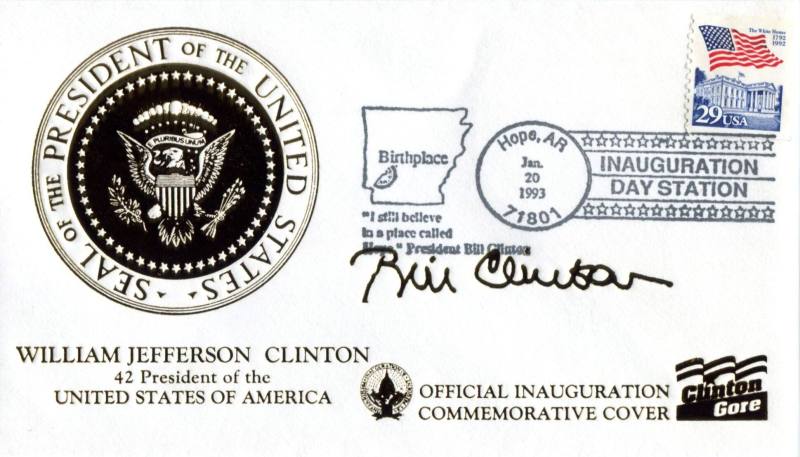 SEAL OF THE PRESIDENT OF THE UNITED STATES
E PLURIBUS UNUM
The White House
1792
1992
29 USA
Hope, AR
Jan.
20
1993
71801
INAUGURATION
DAY STATION
Birthplace
"I still believe
in a place called
Hope" President Bill Clinton
Bill Clinton
WILLIAM JEFFERSON CLINTON
42 President of the
UNITED STATES OF AMERICA
OFFICIAL INAUGURATION
COMMEMORATIVE COVER
Clinton
Gore